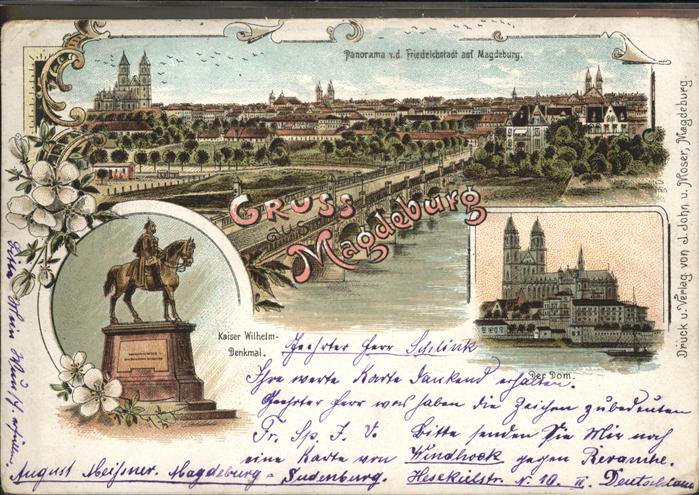 Panorama v.d. Friedrichstadt auf Magdeburg.
GRUSS
aus
Magdeburg
Kaiser Wilhelm-
Denkmal.
Der Dom.
Druck u. Verlag von J. John u. Moser, Magdeburg
Geehrter Herr Schlink
Ihre werte Karte dankend erhalten.
Geehrter Herr was haben die Zeichen zubedeuten
Fr. Sp. I. V. Bitte senden Sie Mir noch
eine Karte von Windhoek gegen Revanche.
August Meißner. Magdeburg-Sudenburg. Hesekielstr. N. 10. II. Deutschland
Bitte Mein Wunsch erfüllen.